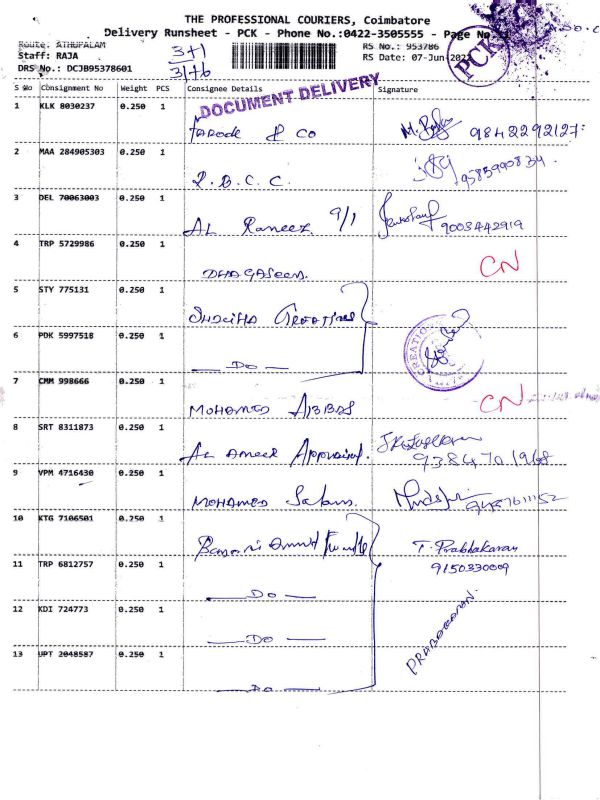 THE PROFESSIONAL COURIERS, Coimbatore
Delivery Runsheet - PCK - Phone No.:0422-3505555 - Page No.
Route: ATHUPALAM
Staff: RAJA
DRS No.: DCJB95378601
3+1
31+6
RS No.: 953786
RS Date: 07-Jun-2023
PCK
DOCUMENT DELIVERY
S No Consignment No Weight PCS Consignee Details Signature
1 KLK 8030237 0.250 1 & Co 9842292127
2 MAA 284905303 0.250 1 R.B.C.C.
3 DEL 70063003 0.250 1 AL Raneez 9/1 9003442919
4 TRP 5729986 0.250 1 CN
5 STY 775131 0.250 1 Creations
6 PDK 5997518 0.250 1 — Do —
7 CMM 998666 0.250 1 MOHAMED ABBAS CN
8 SRT 8311873 0.250 1 AL Ameer Appraisal 9384701968
9 VPM 4716430 0.250 1 MOHAMED Salam
10 KTG 7106501 0.250 1 T. Prabhakaran
9150330009
11 TRP 6812757 0.250 1 — Do —
12 KDI 724773 0.250 1 — Do —
PRABAKARAN
13 UPT 2048587 0.250 1 — Do —